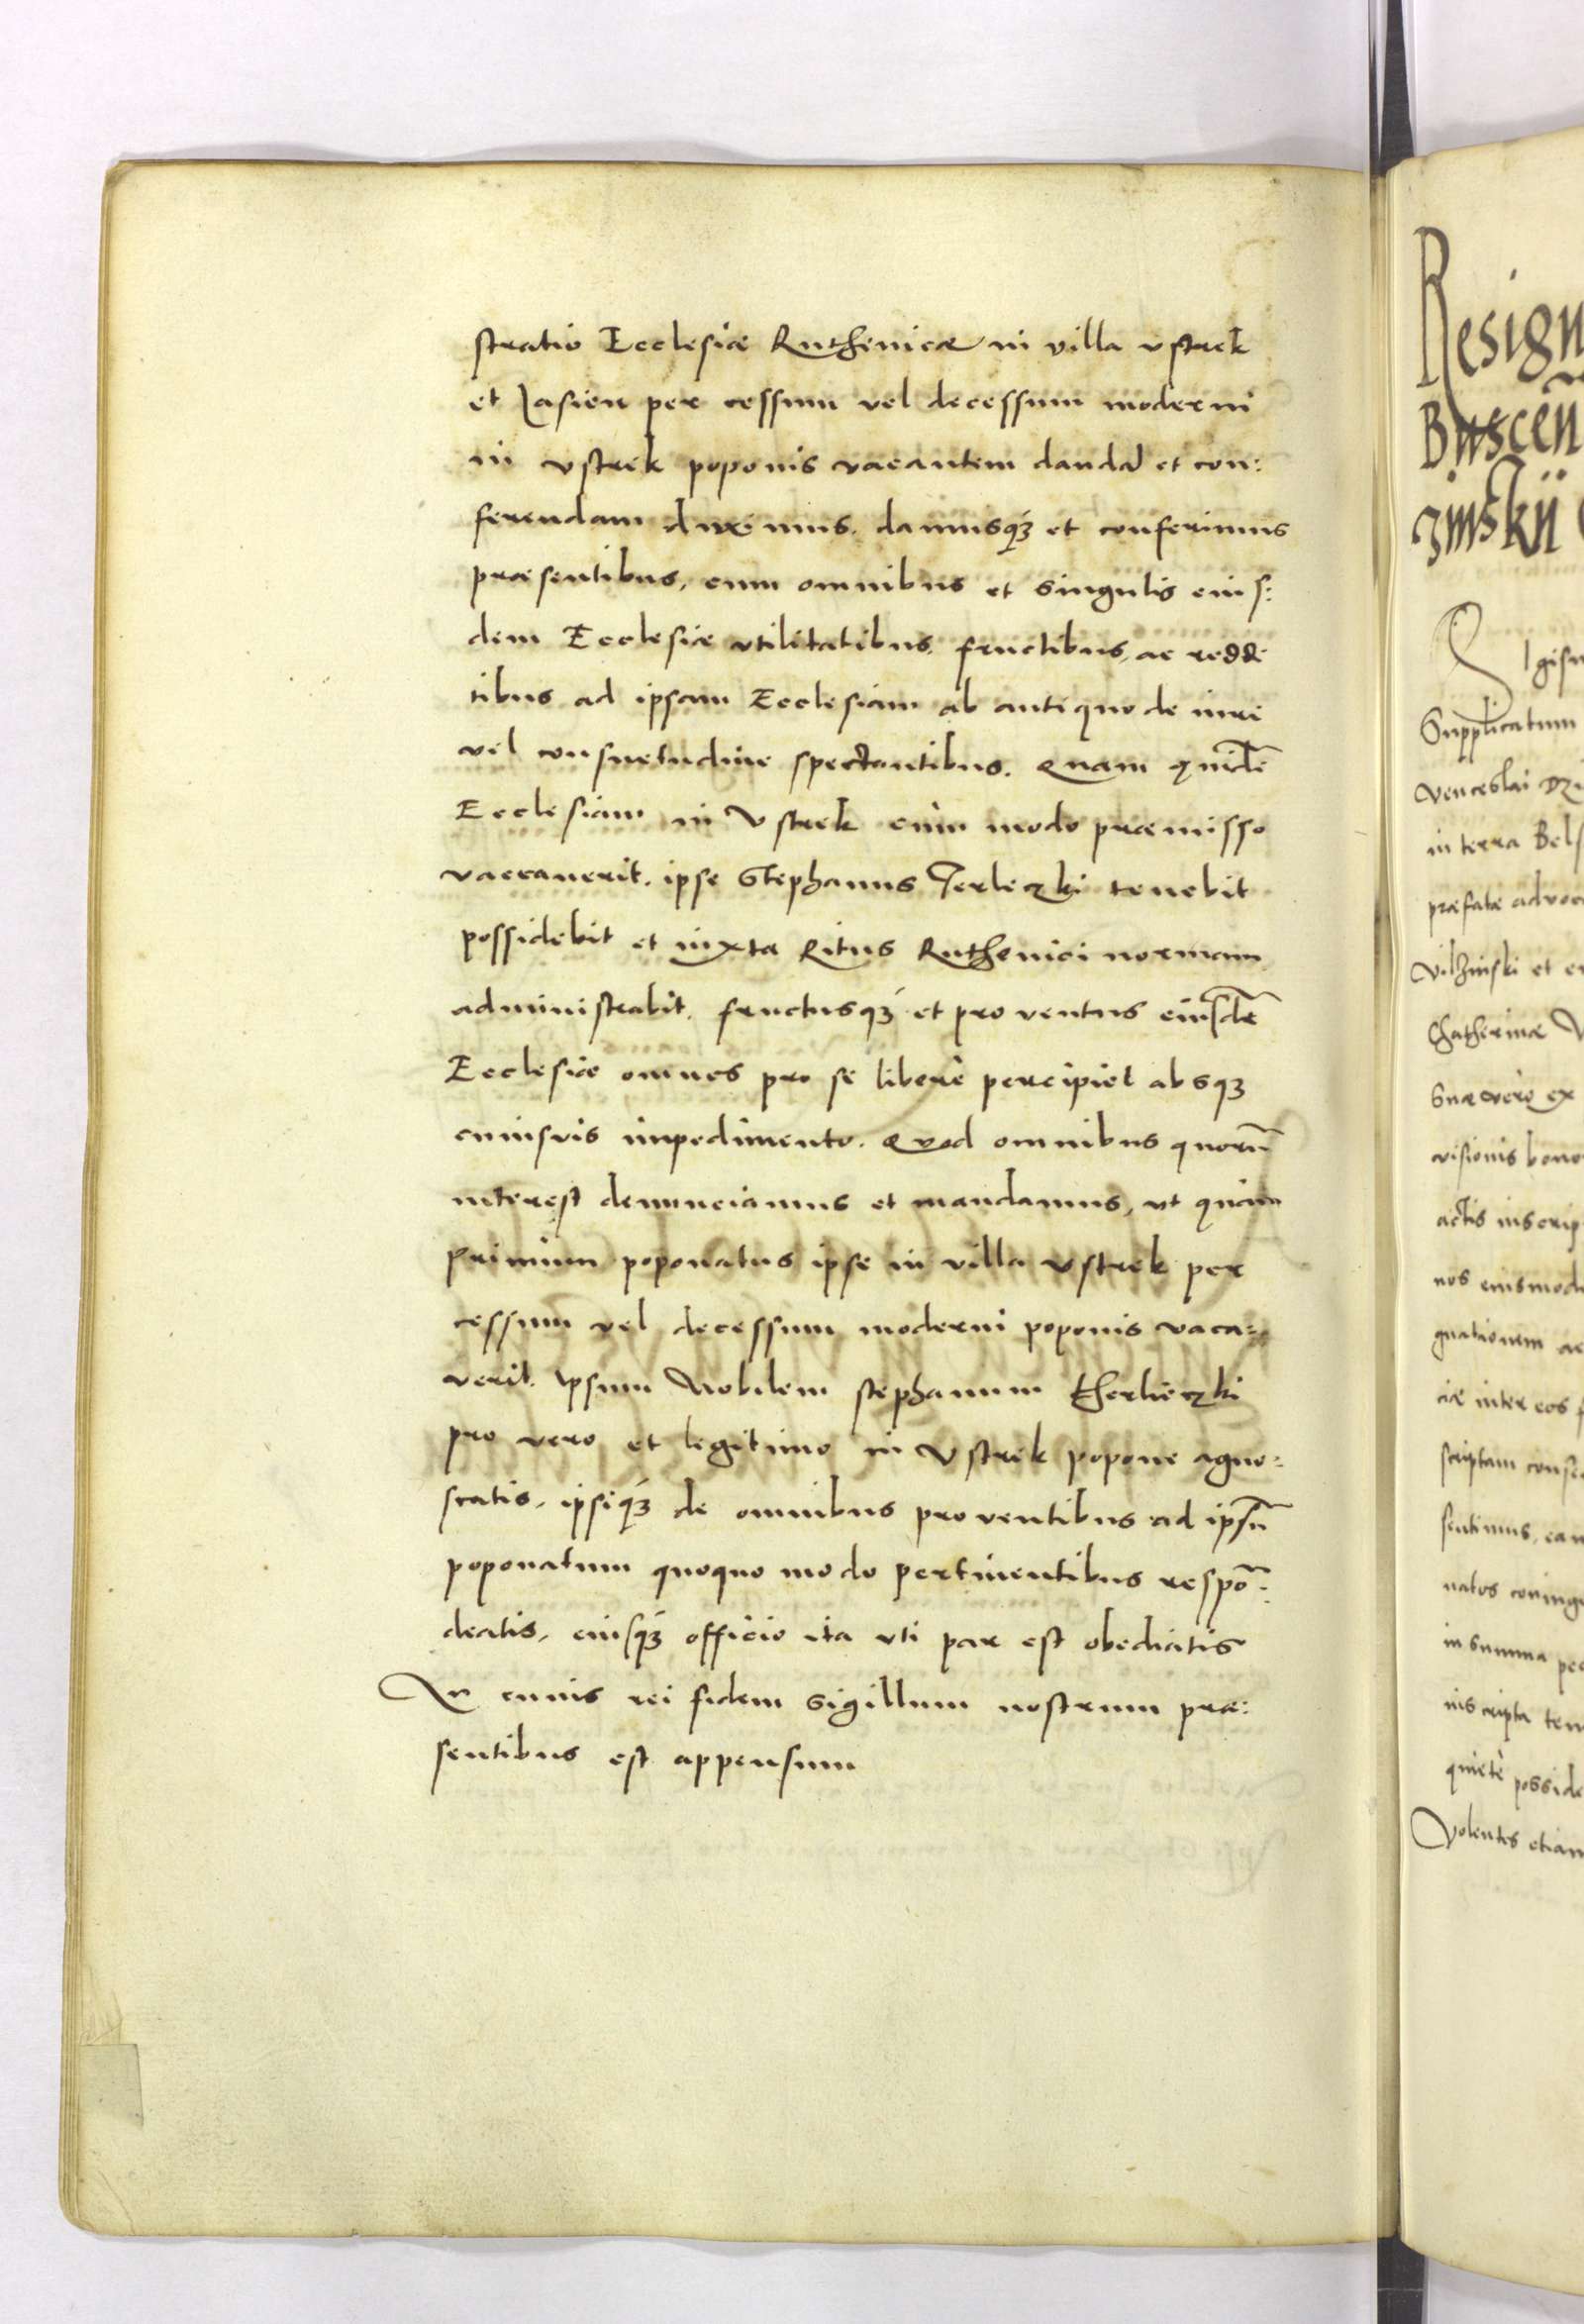 stratio Ecclesiæ Ruthenicæ in villa vstrek
et Jasien per cessum vel decessum moderni
in vstrek poponis vacantem danda et con:
ferendam duximus. damusq́ꝫ et conferimus
præsentibus, cum omnibus et singulis eius:
dem Ecclesiæ vtilitatibus, fructibus, ac reddi
tibus ad ipsam Ecclesiam ab antiquo de iure
vel consuetudine spectantibus. Quam quidē
Ecclesiam in Vstrek cum modo præmisso
vaccauerit. ipse Stephanus Terleczki tenebit
possidebit et iuxta Ritus Ruthenici normam
administrabit. fructusq́ꝫ et prouentus eiusdē
Ecclesiæ omnes pro se liberè percipiet absqꝫ
cuiusvis impedimento. Quod omnibus quorū
interest denunciamus et mandamus, vt quam
primum poponatus ipse in villa Vstrek per
cessum vel decessum moderni poponis vaca:
verit. Ipsum Nobilem stephanum therlieczki
pro vero et legitimo in Vstrek popone agno:
scatis, ipsiq́ꝫ de omnibus prouentibus ad ipsū
poponatum quoquo modo pertinentibus respō:
deatis, eiusq́ꝫ officio ita vti par est obediatis
In cuius rei fidem sigillum nostrum præ:
sentibus est appensum
Resign
Buscen
zinskii
Sigism
Supplicatum
venceslai
in terra Bels
præfatæ advoc
vilzinski et
Chatherinæ
suæ vero ex
visionis bono
actis inscrip
nos eiusmodi
gnationem ac
ciæ inter eos
scriptam conse
sentimus, ean
natos coniuge
in summa pec
inscripta ten
quietè posside
Volentes etiam